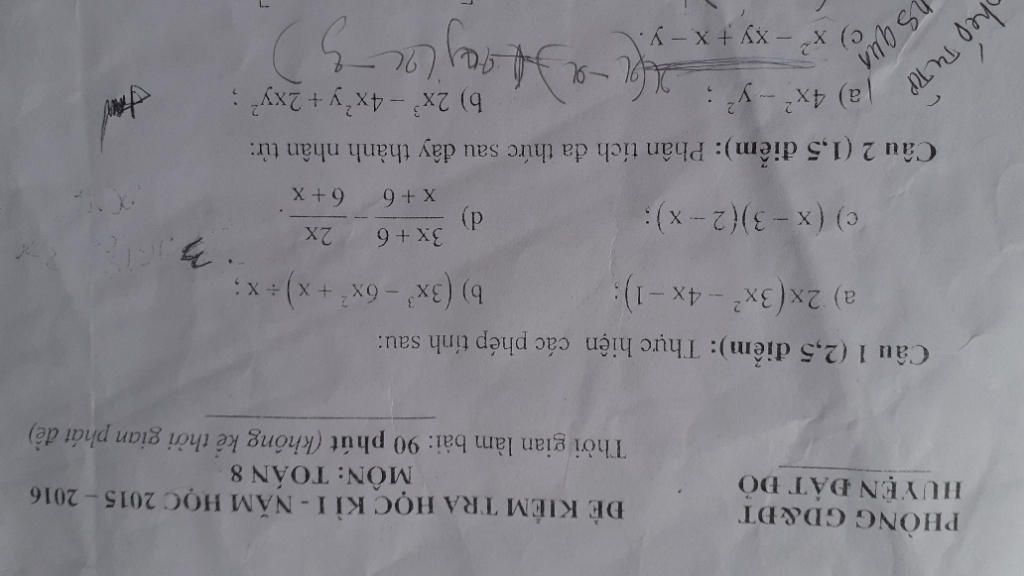 PHÒNG GD&ĐT
HUYỆN ĐẤT ĐỎ
ĐỀ KIỂM TRA HỌC KÌ I - NĂM HỌC 2015 – 2016
MÔN: TOÁN 8
Thời gian làm bài: 90 phút (không kể thời gian phát đề)
Câu 1 (2,5 điểm): Thực hiện các phép tính sau:
a) 2x(3x² − 4x − 1); b) (3x³ − 6x² + x) ÷ x;
c) (x − 3)(2 − x); d) (3x + 6)/(x + 6) − 2x/(6 + x).
Câu 2 (1,5 điểm): Phân tích đa thức sau đây thành nhân tử:
a) 4x² − y²; b) 2x³ − 4x²y + 2xy²;
c) x² − xy + x − y.